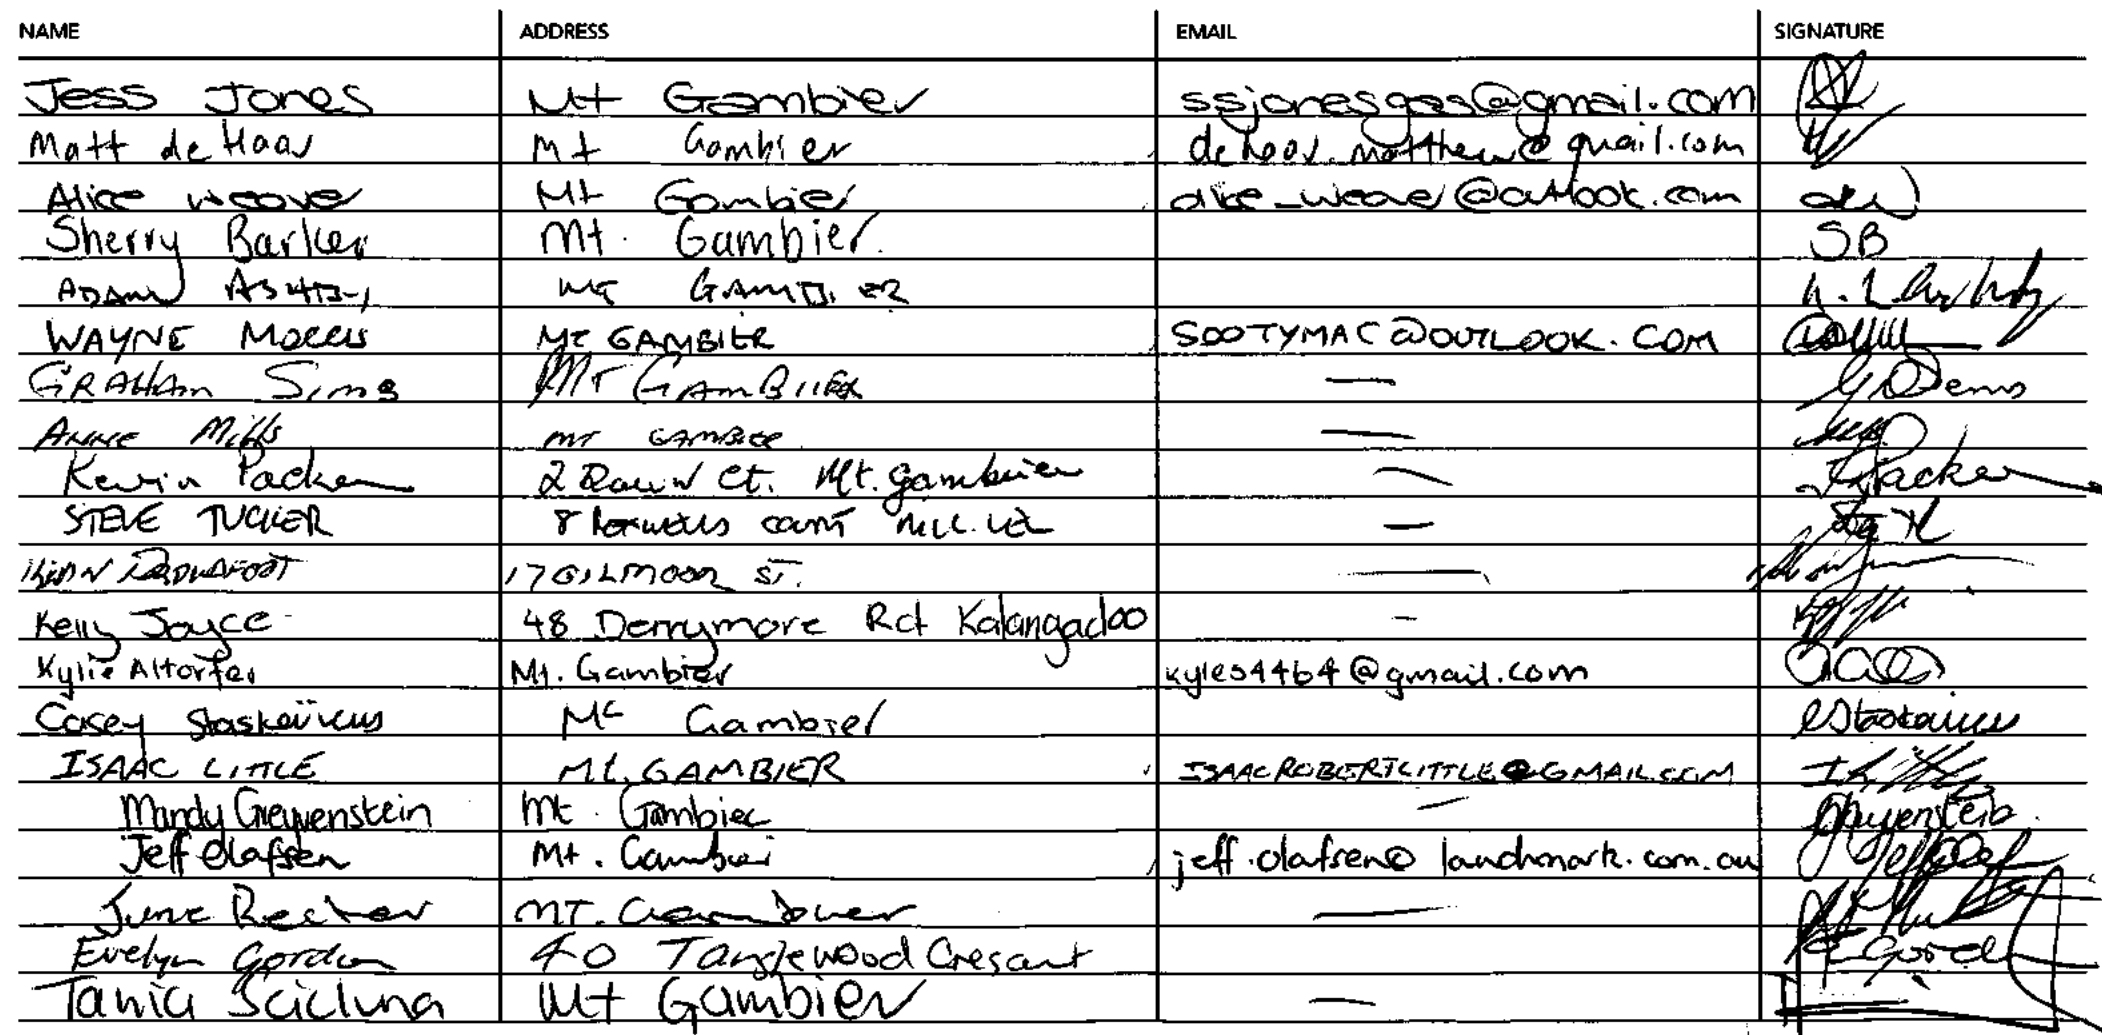 NAME ADDRESS EMAIL SIGNATURE
Jess Jones Mt Gambier ssjonesgas@gmail.com
Matt de Haas Mt Gambier dehaas.matthew@gmail.com
Alice Weaver Mt Gambier alice_weaver@outlook.com
Sherry Barker Mt. Gambier. SB
ADAM ASHBY MT GAMBIER
WAYNE MORRIS MT GAMBIER SOOTYMAC@OUTLOOK.COM
GRAHAM Sims MT GAMBIIER —
ANNE Mills MT GAMBIER —
Kevin Packer 2 Ct. Mt. Gambier — Packer
STEVE TUCKER 8 COURT —
17 GILMOOR ST. —
Kelly Joyce 48 Derrymore Rd Kalangadoo -
Kylie Altorfer Mt. Gambier kyles4464@gmail.com
Casey Staskevicius Mt Gambier
ISAAC LITTLE Mt. GAMBIER ISAACROBERTLITTLE@GMAIL.COM
Mandy Greyvenstein Mt. Gambier —
Jeff Olafsen Mt. Gambier jeff.olafsen@landmark.com.au
June MT. Gambier —
Evelyn Gordon 40 Tanglewood Cresant
Tania Scicluna Mt Gambier —